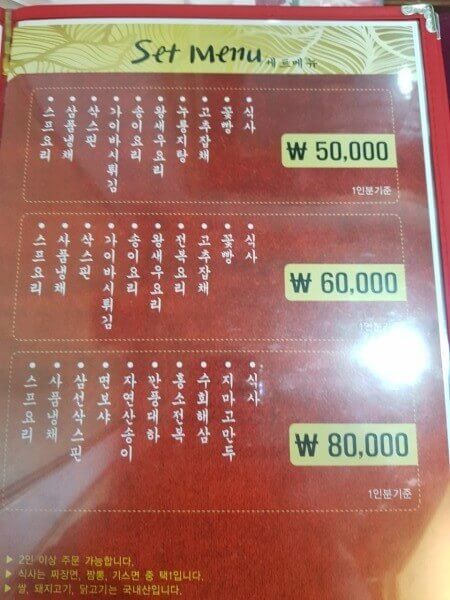 Set Menu 세트메뉴
스프요리
삼품냉채
삭스핀
가이바시튀김
송이요리
왕새우요리
누룽지탕
고추잡채
꽃빵
식사
₩ 50,000
1인분기준
스프요리
사품냉채
삭스핀
가이바시튀김
송이요리
왕새우요리
전복요리
고추잡채
꽃빵
식사
₩ 60,000
1인분기준
스프요리
사품냉채
삼선삭스핀
면보샤
자연산송이
깐풍대하
홍소전복
수회해삼
지마고만두
식사
₩ 80,000
1인분기준
▶ 2인 이상 주문 가능합니다.
▶ 식사는 짜장면, 짬뽕, 기스면 중 택1입니다.
▶ 쌀, 돼지고기, 닭고기는 국내산입니다.